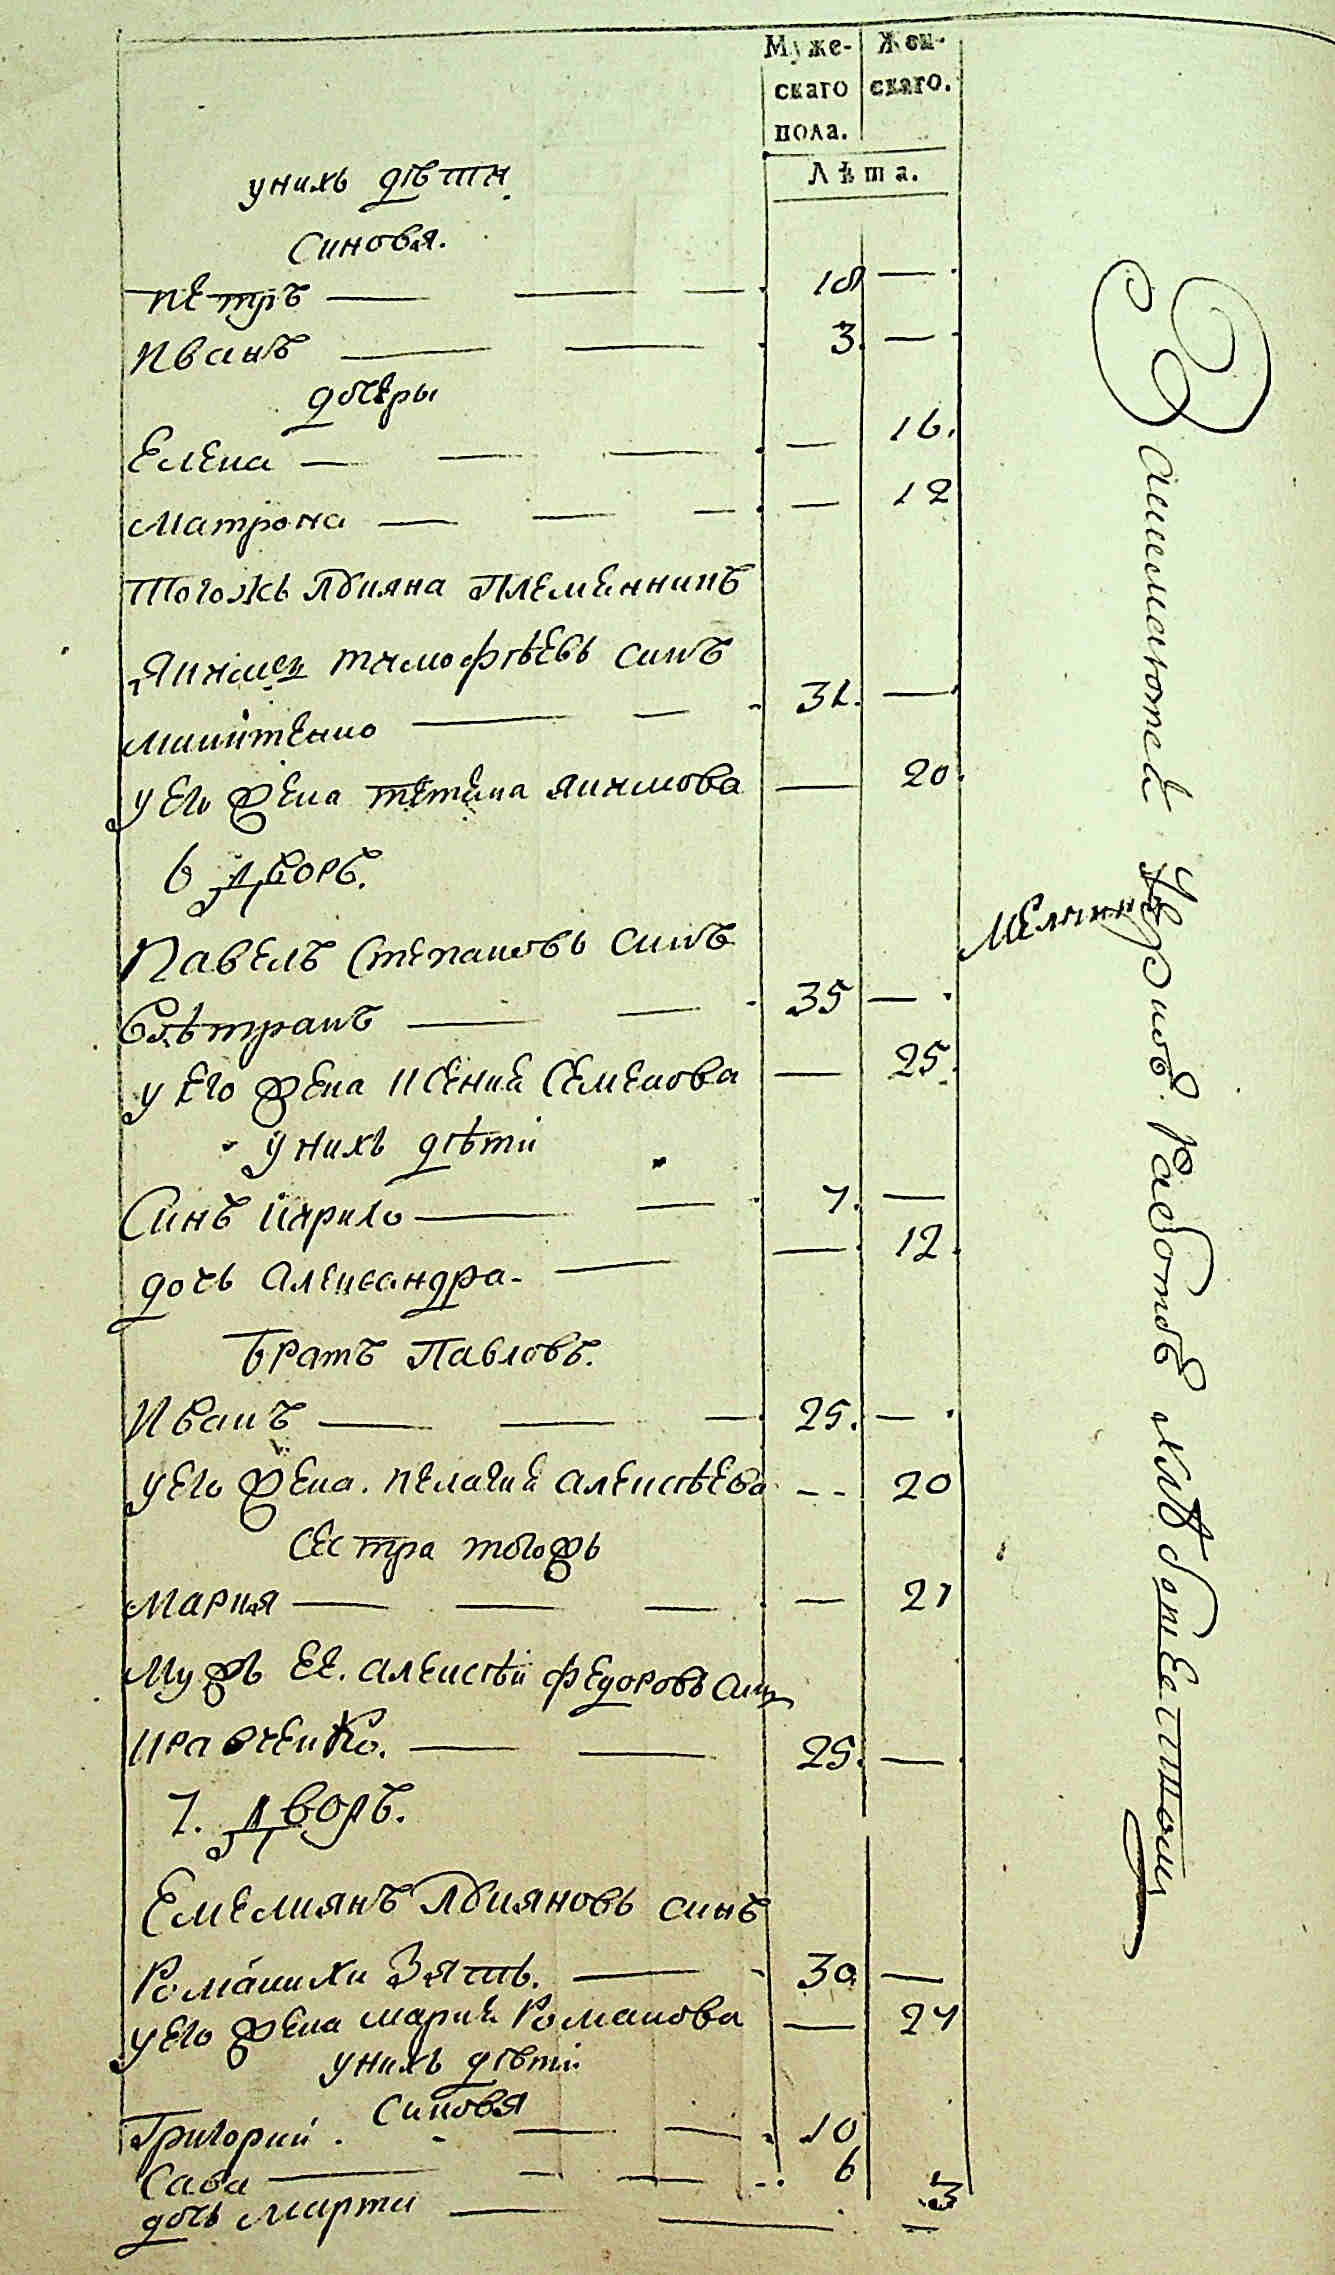 Муже-
скаго
пола.
Жен-
скаго.
Лѣта.
у нихъ дѣти
Синовя.
петръ 18
Иванъ 3.
дочеры
Елена 16.
Матрона 12
Тогожъ Лукияна Племенникъ
Якимъ тимофѣевъ синъ
Микитенко 32.
у его жена тетяна якимова 20.
6 дворъ.
Павелъ Степановъ синъ
35
у его жена ксения Семенова 25.
у нихъ дѣти
Синъ кирило 7.
дочь Александра 12.
братъ Павловъ.
Иванъ 25.
у его жена. пелагия алексѣева 20
Сестра тогожъ
Мария 21
Мужъ ее. алексѣй федоровъ синъ
кравченко. 25.
7. дворъ.
Емелиянъ Лукияновъ синъ
Романихи Зять. 30
у его жена мария Романова 24
у нихъ дѣти
Синовя
Григорий. 10
Сава 6
дочь Марта 3
хлѣбопашествомъ